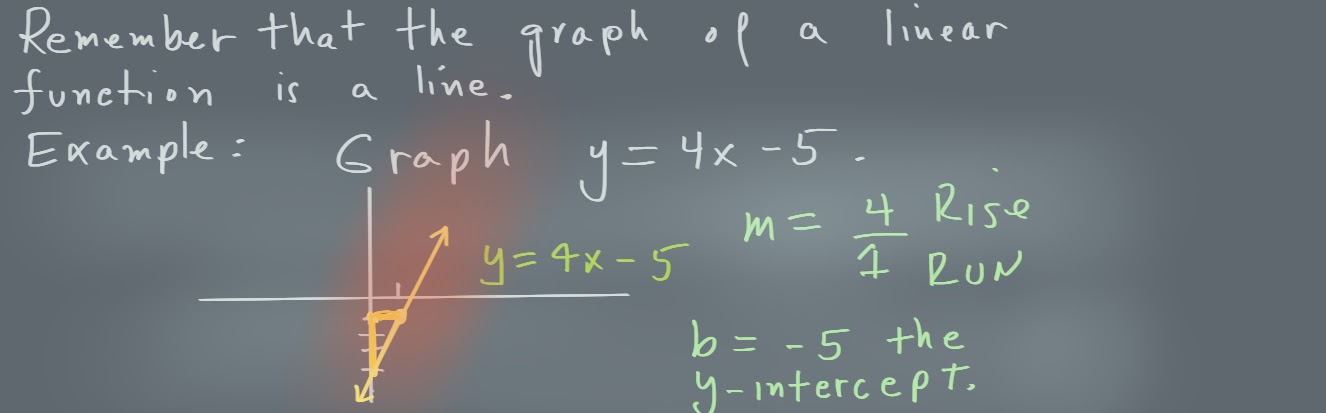 Remember that the graph of a linear
function is a line.
Example: Graph y = 4x - 5.
m = 4/1 Rise RUN
y = 4x - 5
b = -5 the
y-intercept.